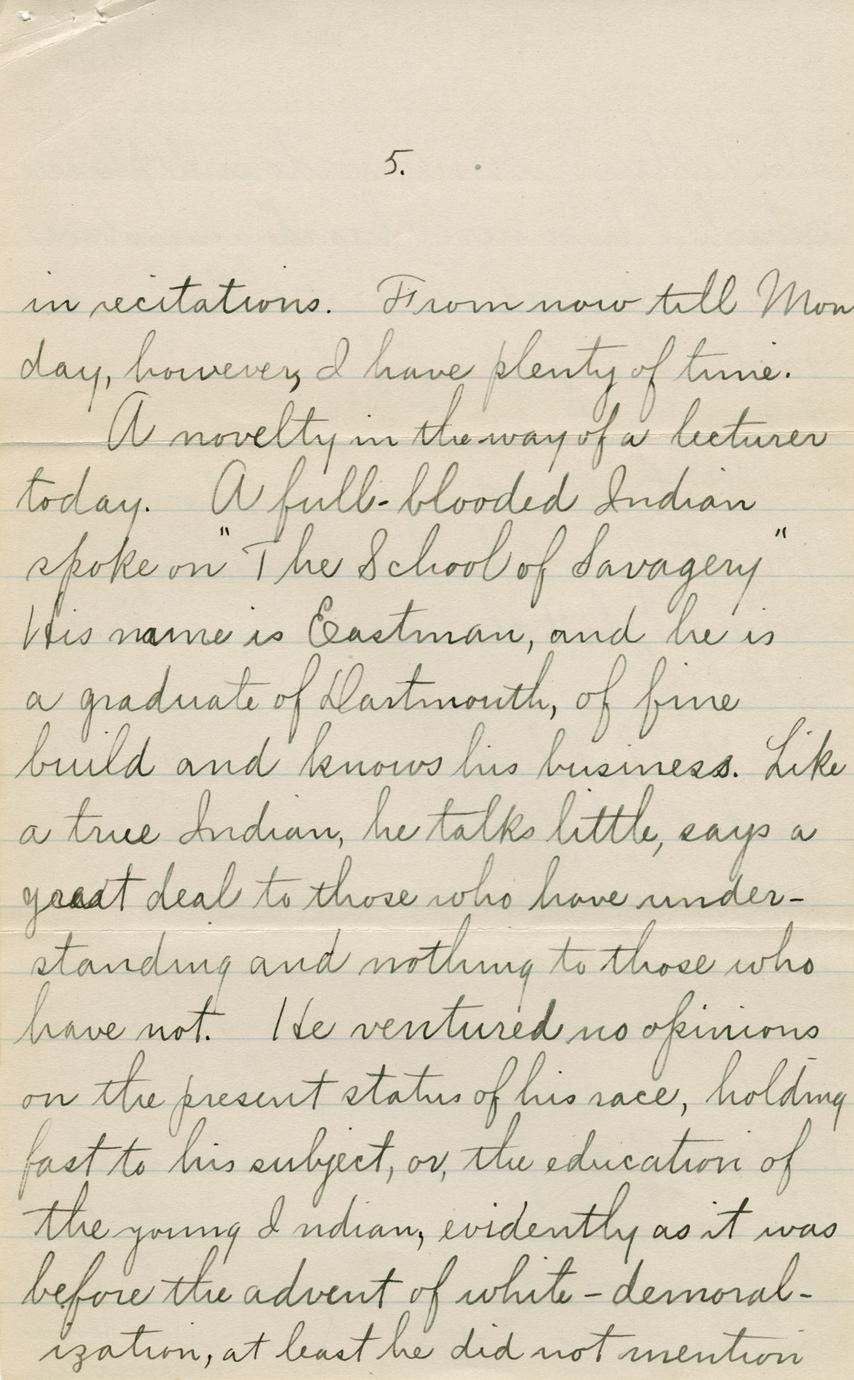 5.
in recitations. From now till Mon
day, however, I have plenty of time.
A novelty in the way of a lecturer
today. A full-blooded Indian
spoke on "The School of Savagery"
His name is Eastman, and he is
a graduate of Dartmouth, of fine
build and knows his business. Like
a true Indian, he talks little, says a
great deal to those who have under-
standing and nothing to those who
have not. He ventured no opinions
on the present status of his race, holding
fast to his subject, or, the education of
the young Indian, evidently as it was
before the advent of white-demoral-
ization, at least he did not mention